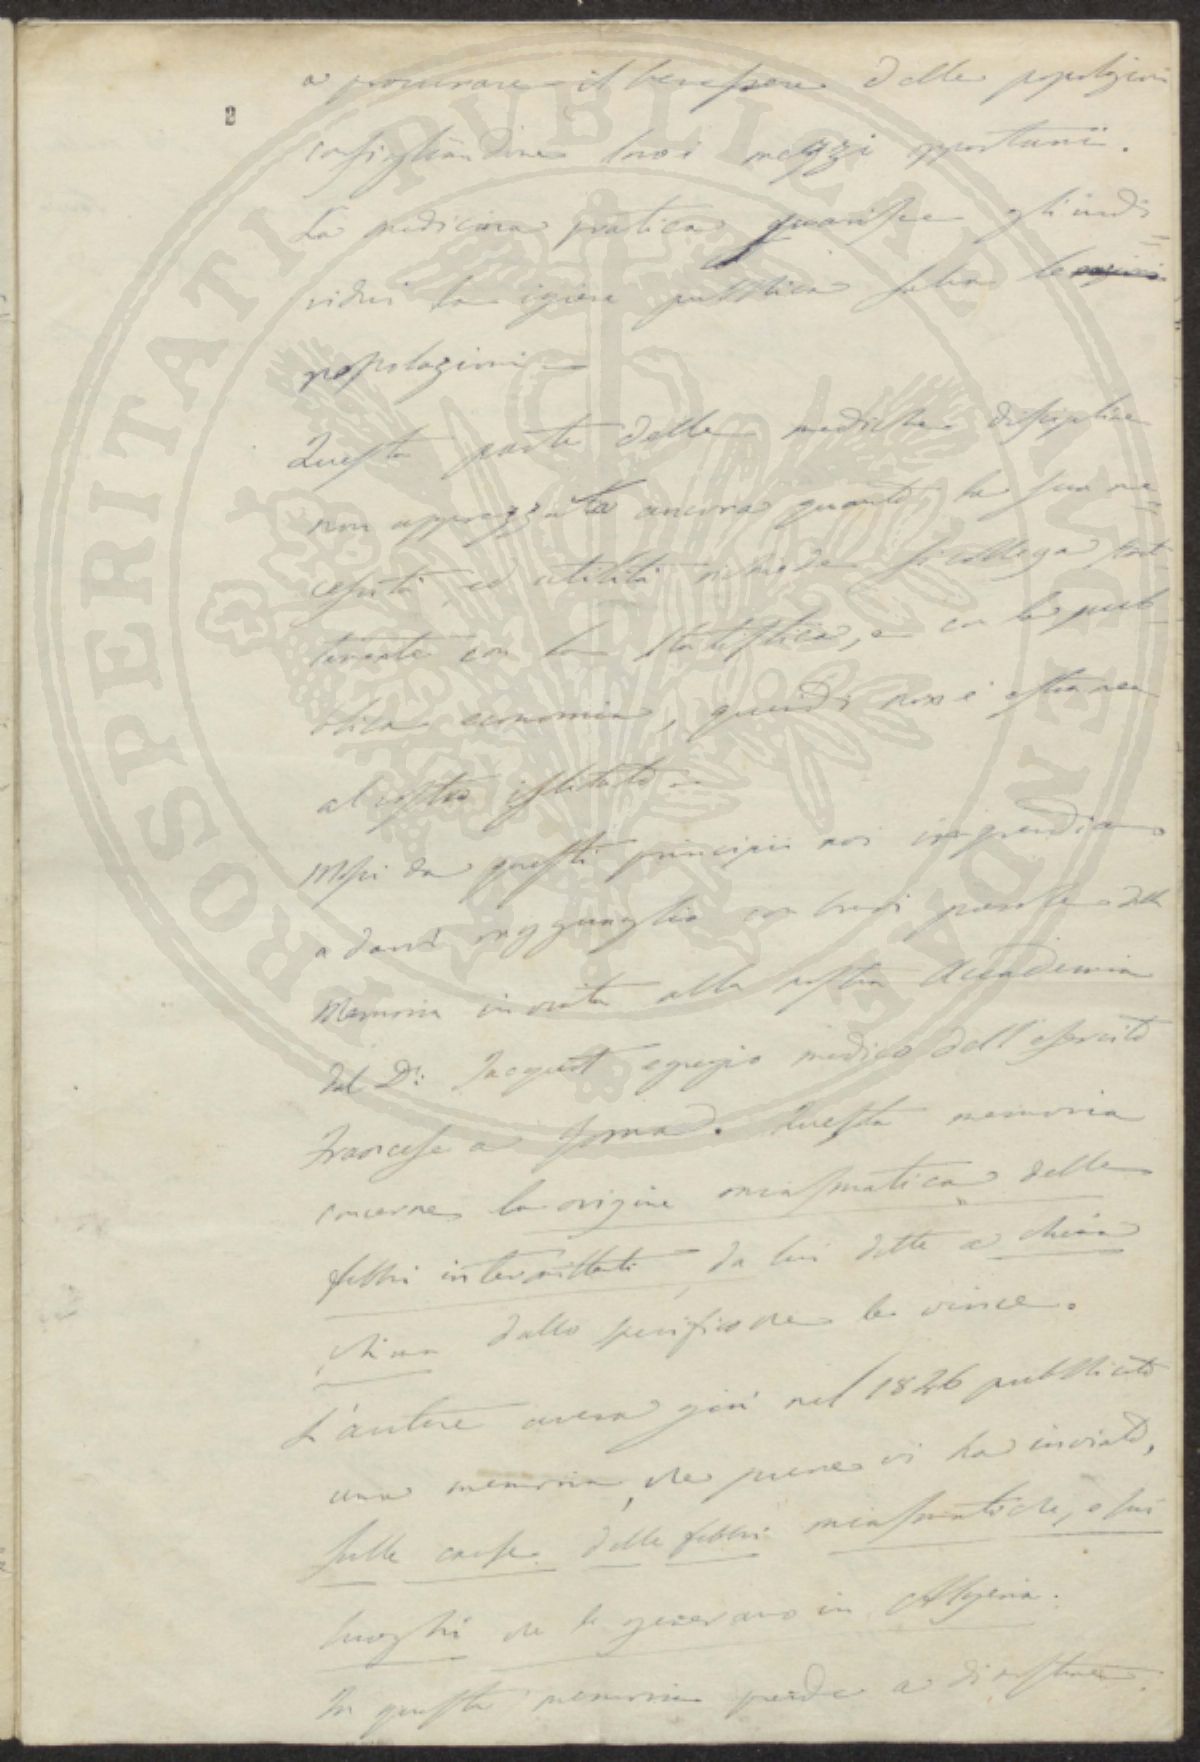 2
a procurare il benessere delle popolazioni
consigliandone loro i mezzi opportuni.
La medicina pratica guarisce gli indi
vidui la igiene pubblica salva le
popolazioni
Questa parte delle mediche discipline
non apprezzata ancora quanto la sua ne
cessità ed utilità richiede si collega
con la Statistica, e con la pub
blica economia, quindi non è estranea
al vostro istituto.
Mossi da questi principii noi imprendiamo
a darvi ragguaglio con brevi parole della
Memoria inviata alla nostra Accademia
dal Dr: Jacquot egregio medico dell'esercito
Francese a Roma. Questa memoria
concerne la origine miasmatica delle
febbri intermittenti, da lui dette a china
china dallo specifico che le vince.
L'autore aveva già nel 1846 pubblicato
una memoria, che pure vi ha inviato,
sulle cause delle febbri miasmatiche, e sui
luoghi che le generano in Algeria.
In questa memoria prende a dimostrare
PROSPERITATI PUBLICAE AUGENDAE